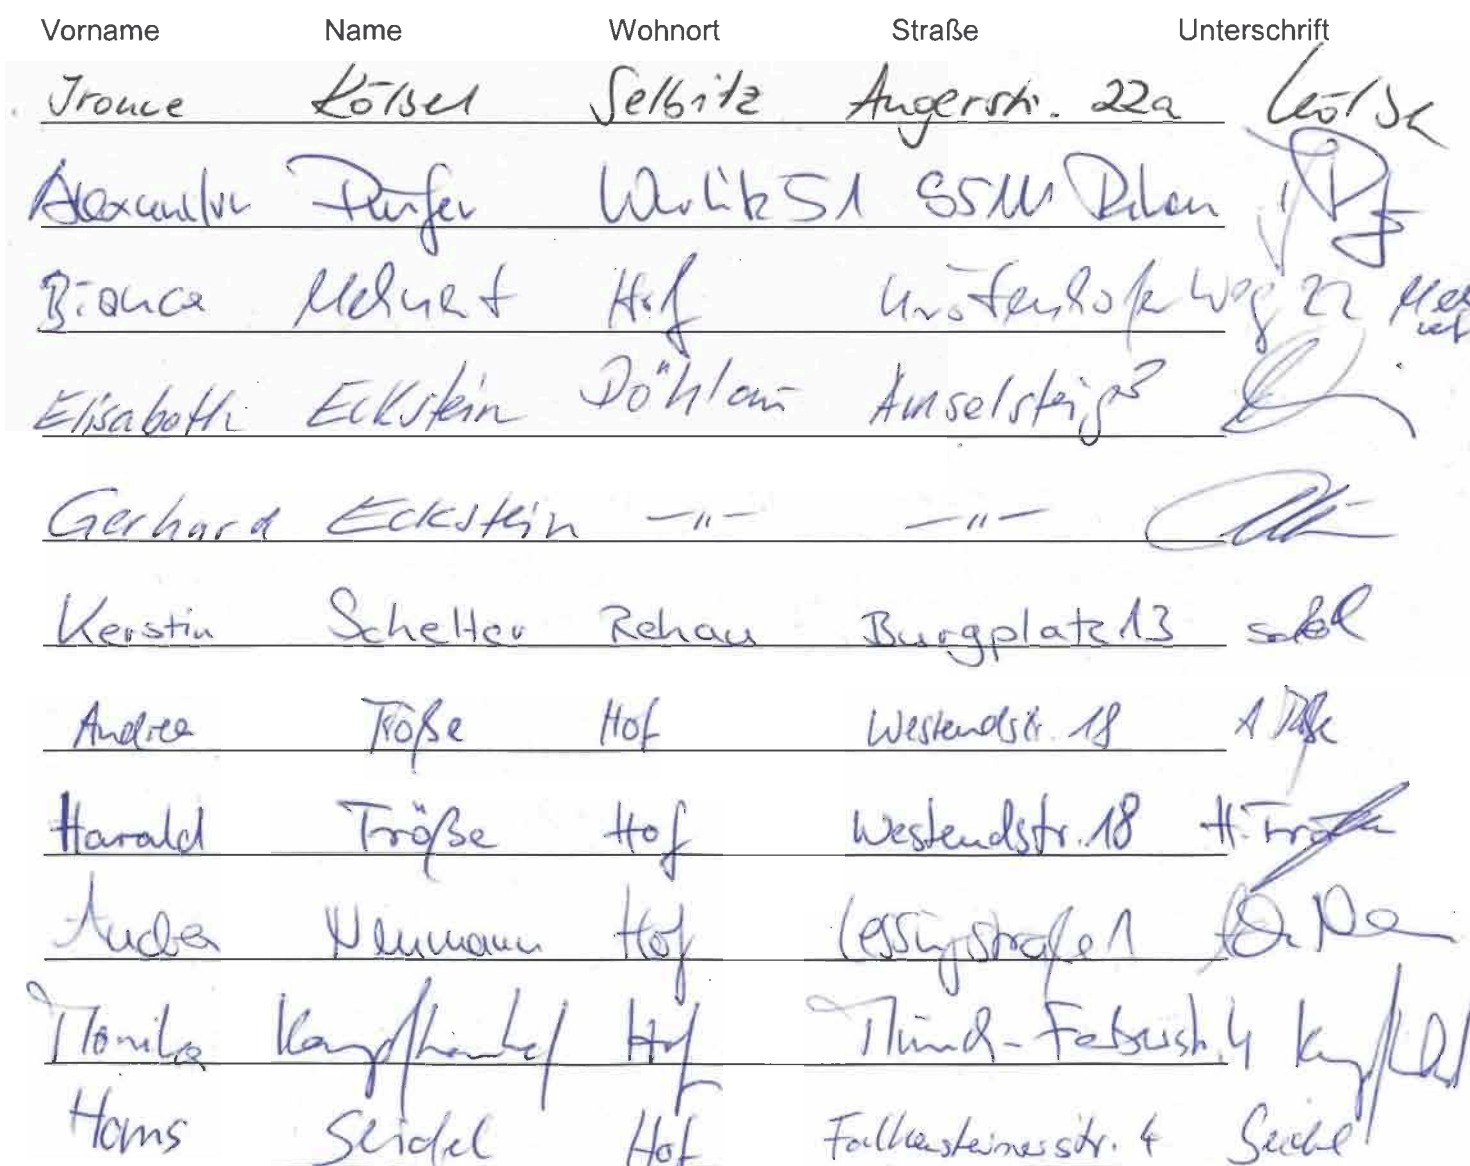 Vorname Name Wohnort Straße Unterschrift
Kölbel Selbitz Angerstr. 22a
Alexander Wurlitz 51 95111 Rehau
Bianca Mehnert Hof Krötenhofer Weg 22
Elisabeth Eckstein Döhlau Amselsteig 3
Gerhard Eckstein -"- -"-
Kerstin Schelter Rehau Burgplatz 13
Andrea Tröße Hof Westendstr. 18 A Tröße
Harald Tröße Hof Westendstr. 18 H. Tröße
Andrea Neumann Hof Lessingstraße 1
Monika Hof
Hans Seidel Hof Falkensteinerstr. 4 Seidel